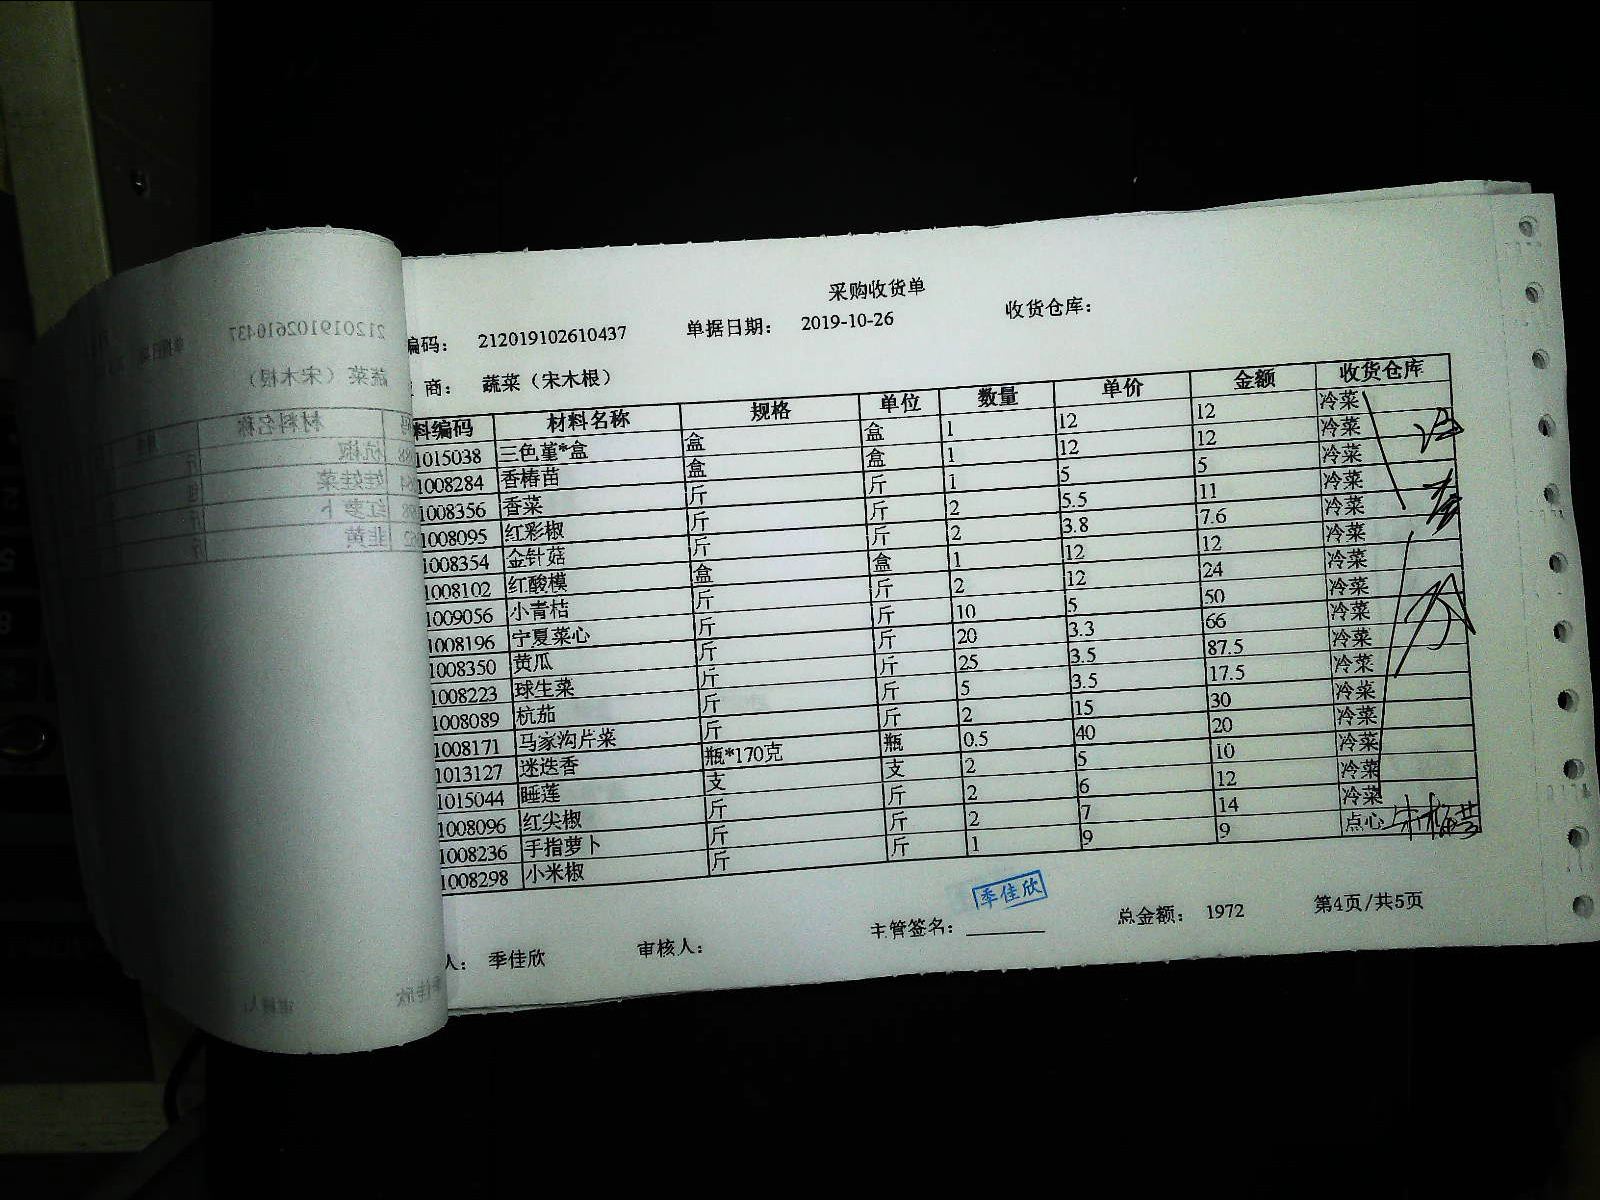 采购收货单
编码： 212019102610437 单据日期： 2019-10-26 收货仓库：
商： 蔬菜（宋木根）
料编码 材料名称 规格 单位 数量 单价 金额 收货仓库
1015038 三色堇*盒 盒 盒 1 12 12 冷菜
1008284 香椿苗 盒 盒 1 12 12 冷菜
1008356 香菜 斤 斤 1 5 5 冷菜
1008095 红彩椒 斤 斤 2 5.5 11 冷菜
1008354 金针菇 斤 斤 2 3.8 7.6 冷菜
1008102 红酸模 盒 盒 1 12 12 冷菜
1009056 小青桔 斤 斤 2 12 24 冷菜
1008196 宁夏菜心 斤 斤 10 5 50 冷菜
1008350 黄瓜 斤 斤 20 3.3 66 冷菜
1008223 球生菜 斤 斤 25 3.5 87.5 冷菜
1008089 杭茄 斤 斤 5 3.5 17.5 冷菜
1008171 马家沟片菜 斤 斤 2 15 30 冷菜
1013127 迷迭香 瓶*170克 瓶 0.5 40 20 冷菜
1015044 睡莲 支 支 2 5 10 冷菜
1008096 红尖椒 斤 斤 2 6 12 冷菜
1008236 手指萝卜 斤 斤 2 7 14 冷菜
1008298 小米椒 斤 斤 1 9 9 点心
人： 季佳欣 审核人： 主管签名： 季佳欣 总金额： 1972 第4页/共5页